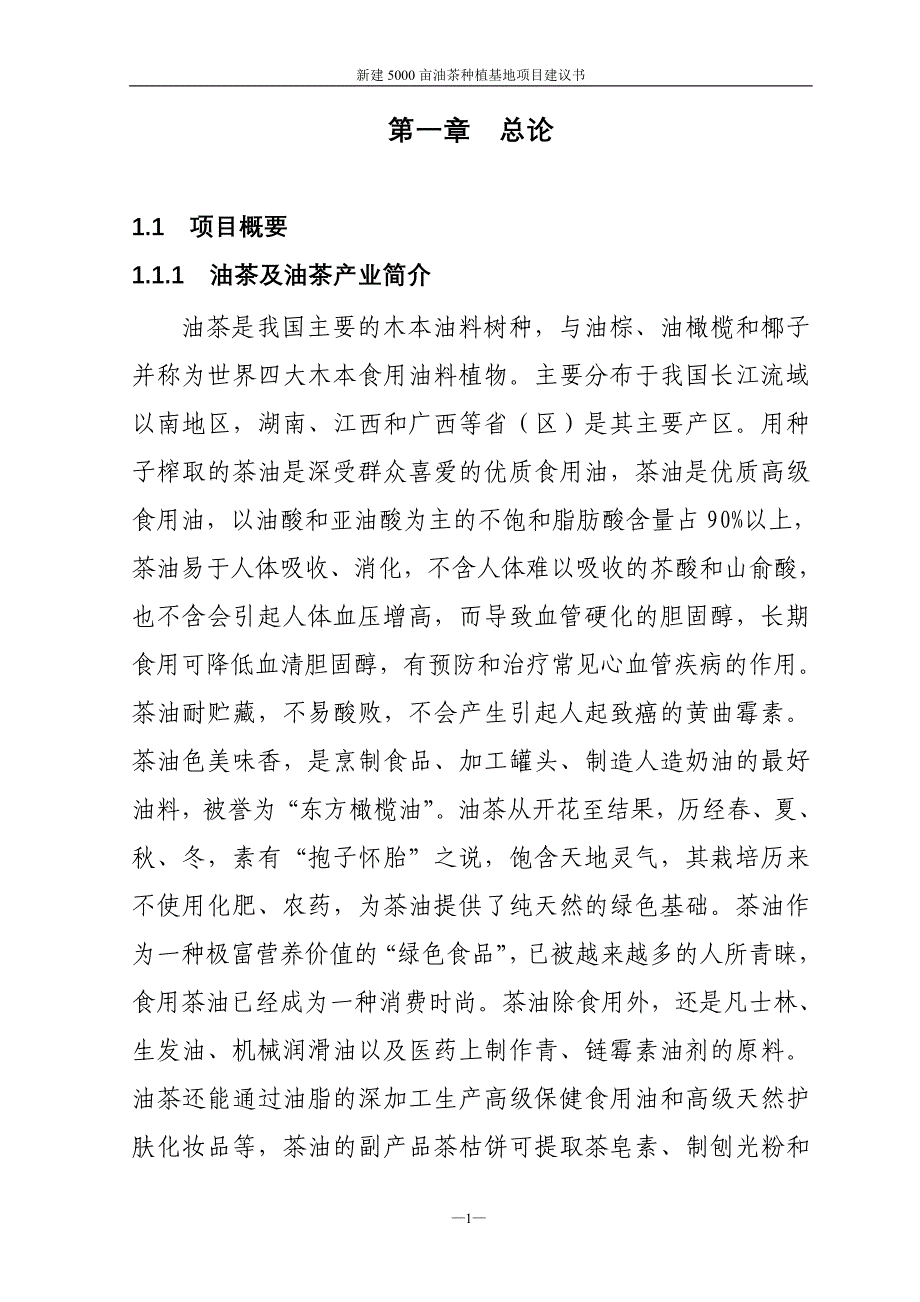 新建 5000 亩油茶种植基地项目建议书
第一章　总论
1.1　项目概要
1.1.1　油茶及油茶产业简介
油茶是我国主要的木本油料树种，与油棕、油橄榄和椰子
并称为世界四大木本食用油料植物。主要分布于我国长江流域
以南地区，湖南、江西和广西等省（区）是其主要产区。用种
子榨取的茶油是深受群众喜爱的优质食用油，茶油是优质高级
食用油，以油酸和亚油酸为主的不饱和脂肪酸含量占 90%以上，
茶油易于人体吸收、消化，不含人体难以吸收的芥酸和山俞酸，
也不含会引起人体血压增高，而导致血管硬化的胆固醇，长期
食用可降低血清胆固醇，有预防和治疗常见心血管疾病的作用。
茶油耐贮藏，不易酸败，不会产生引起人起致癌的黄曲霉素。
茶油色美味香，是烹制食品、加工罐头、制造人造奶油的最好
油料，被誉为“东方橄榄油”。油茶从开花至结果，历经春、夏、
秋、冬，素有“抱子怀胎”之说，饱含天地灵气，其栽培历来
不使用化肥、农药，为茶油提供了纯天然的绿色基础。茶油作
为一种极富营养价值的“绿色食品”，已被越来越多的人所青睐，
食用茶油已经成为一种消费时尚。茶油除食用外，还是凡士林、
生发油、机械润滑油以及医药上制作青、链霉素油剂的原料。
油茶还能通过油脂的深加工生产高级保健食用油和高级天然护
肤化妆品等，茶油的副产品茶枯饼可提取茶皂素、制刨光粉和
—1—